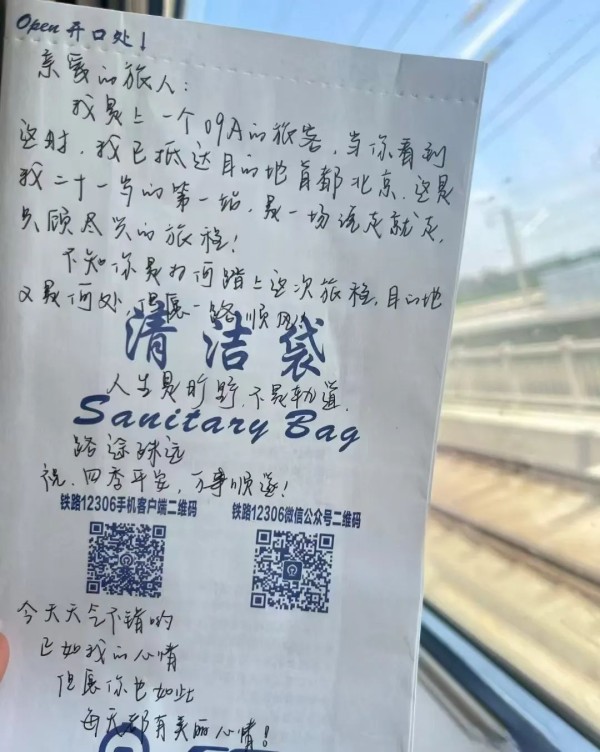 Open 开口处↓
亲爱的旅人：
我是上一个09A的旅客，当你看到
这时，我已抵达目的地首都北京，这是
我二十一岁的第一站，是一场说走就走，
只顾尽兴的旅程！
不知你是为何踏上这次旅程，目的地
又是何处，但愿一路顺风！
清洁袋
人生是旷野，不是轨道，
Sanitary Bag
路途殊远
祝，四季平安，万事顺遂！
铁路12306手机客户端二维码 铁路12306微信公众号二维码
今天天气不错的
已如我的心情
但愿你也如此
每天都有美丽心情！